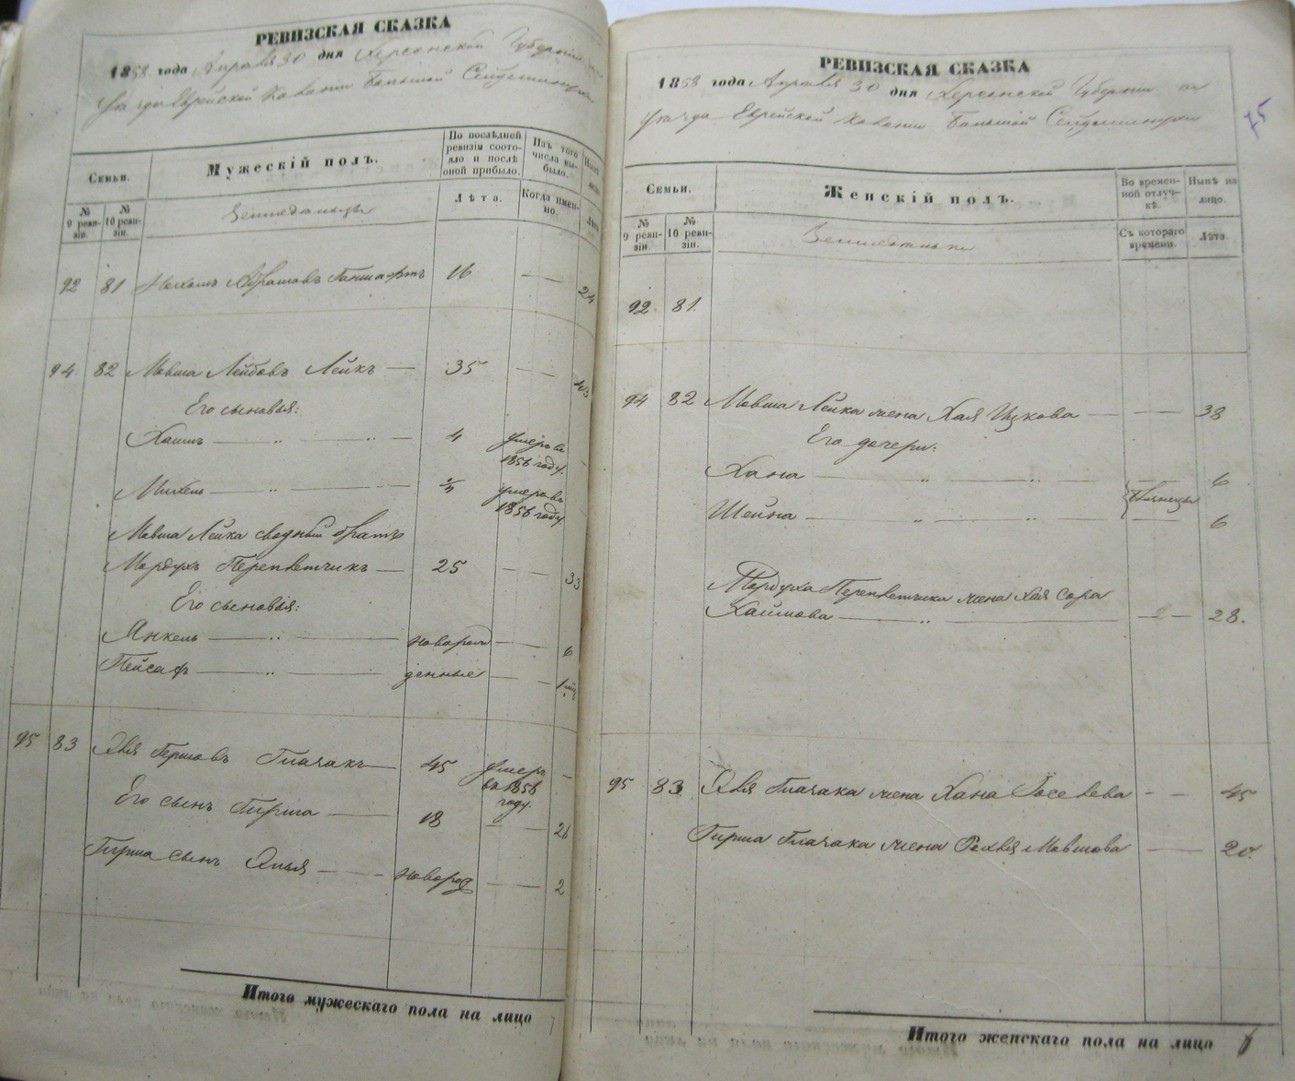 РЕВИЗСКАЯ СКАЗКА
1858 года Апреля 30 дня Херсонской Губернии
уезда Еврейской Колонии Большой Сейдеминухи
Семьи.
Мужескій полъ.
По послѣдней ревизіи состояло и послѣ оной прибыло.
Изъ того числа выбыло.
№ 9 ревизіи.
№ 10 ревизіи.
Лѣта.
Когда именно.
92 81 Абрамовъ 16 — — 24
94 82 Мовша Лейбовъ Лейкъ — 35 — — 43
Его сыновья:
Хаимъ — „ — „ — 4 умеръ въ 1856 году. —
— „ — умеръ въ 1856 году
Мовша Лейка сводный братъ
Мордухъ Перепветчикъ — 25 — — 33
Его сыновья:
Янкель — „ — новорож — — 6
Пейсахъ — „ — денные — — 1
95 83 Гершовъ Плачакъ — 45 умеръ въ 1856 году. —
Его сынъ Гирша — 18 — — 26
Гирша сынъ — новорож — — 2
Итого мужескаго пола на лицо 7
РЕВИЗСКАЯ СКАЗКА
1858 года Апреля 30 дня Херсонской Губернии
уезда Еврейской Колонии Большой Сейдеминухи
75
Семьи.
Женскій полъ.
Во временной отлучкѣ.
Нынѣ на лицо.
№ 9 ревизіи.
№ 10 ревизіи.
Съ котораго времени.
Лѣта.
92 81.
94 82 Мовша Лейка жена Хая Ицкова — — 38
Его дочери:
Хана — „ — „ — 6
Шейна — „ — „ — близнецы — 6
Мордуха Перепветчика жена Хая Сора
Хаимова — „ — — — 28.
95 83 Плачака жена Хана — — 45
Гирша Плачака жена Мовшова — — 20.
Итого женскаго пола на лицо